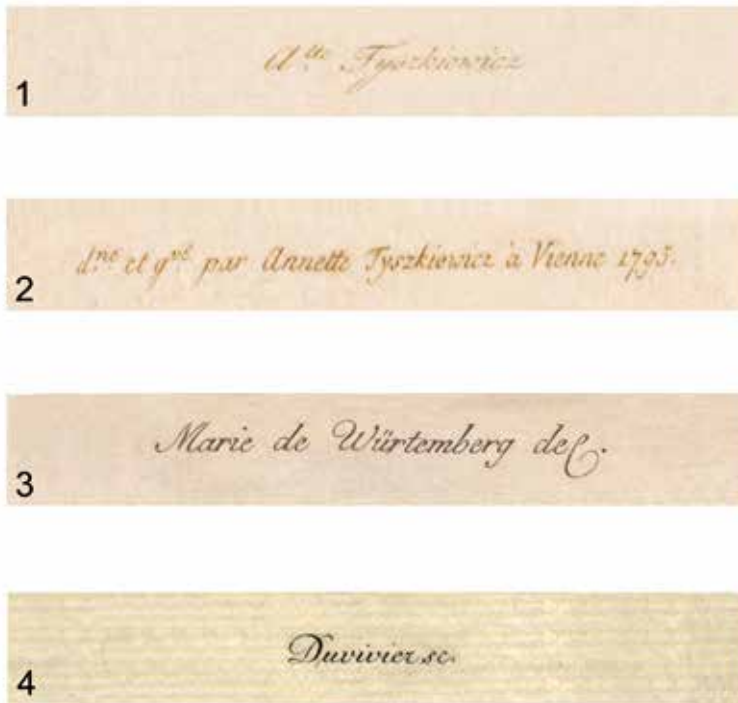 A.tte Tyszkiewicz
1
d.né et g.vé par Annette Tyszkiewicz à Vienne 1795.
2
Marie de Würtemberg del.
3
Duvivier sc.
4